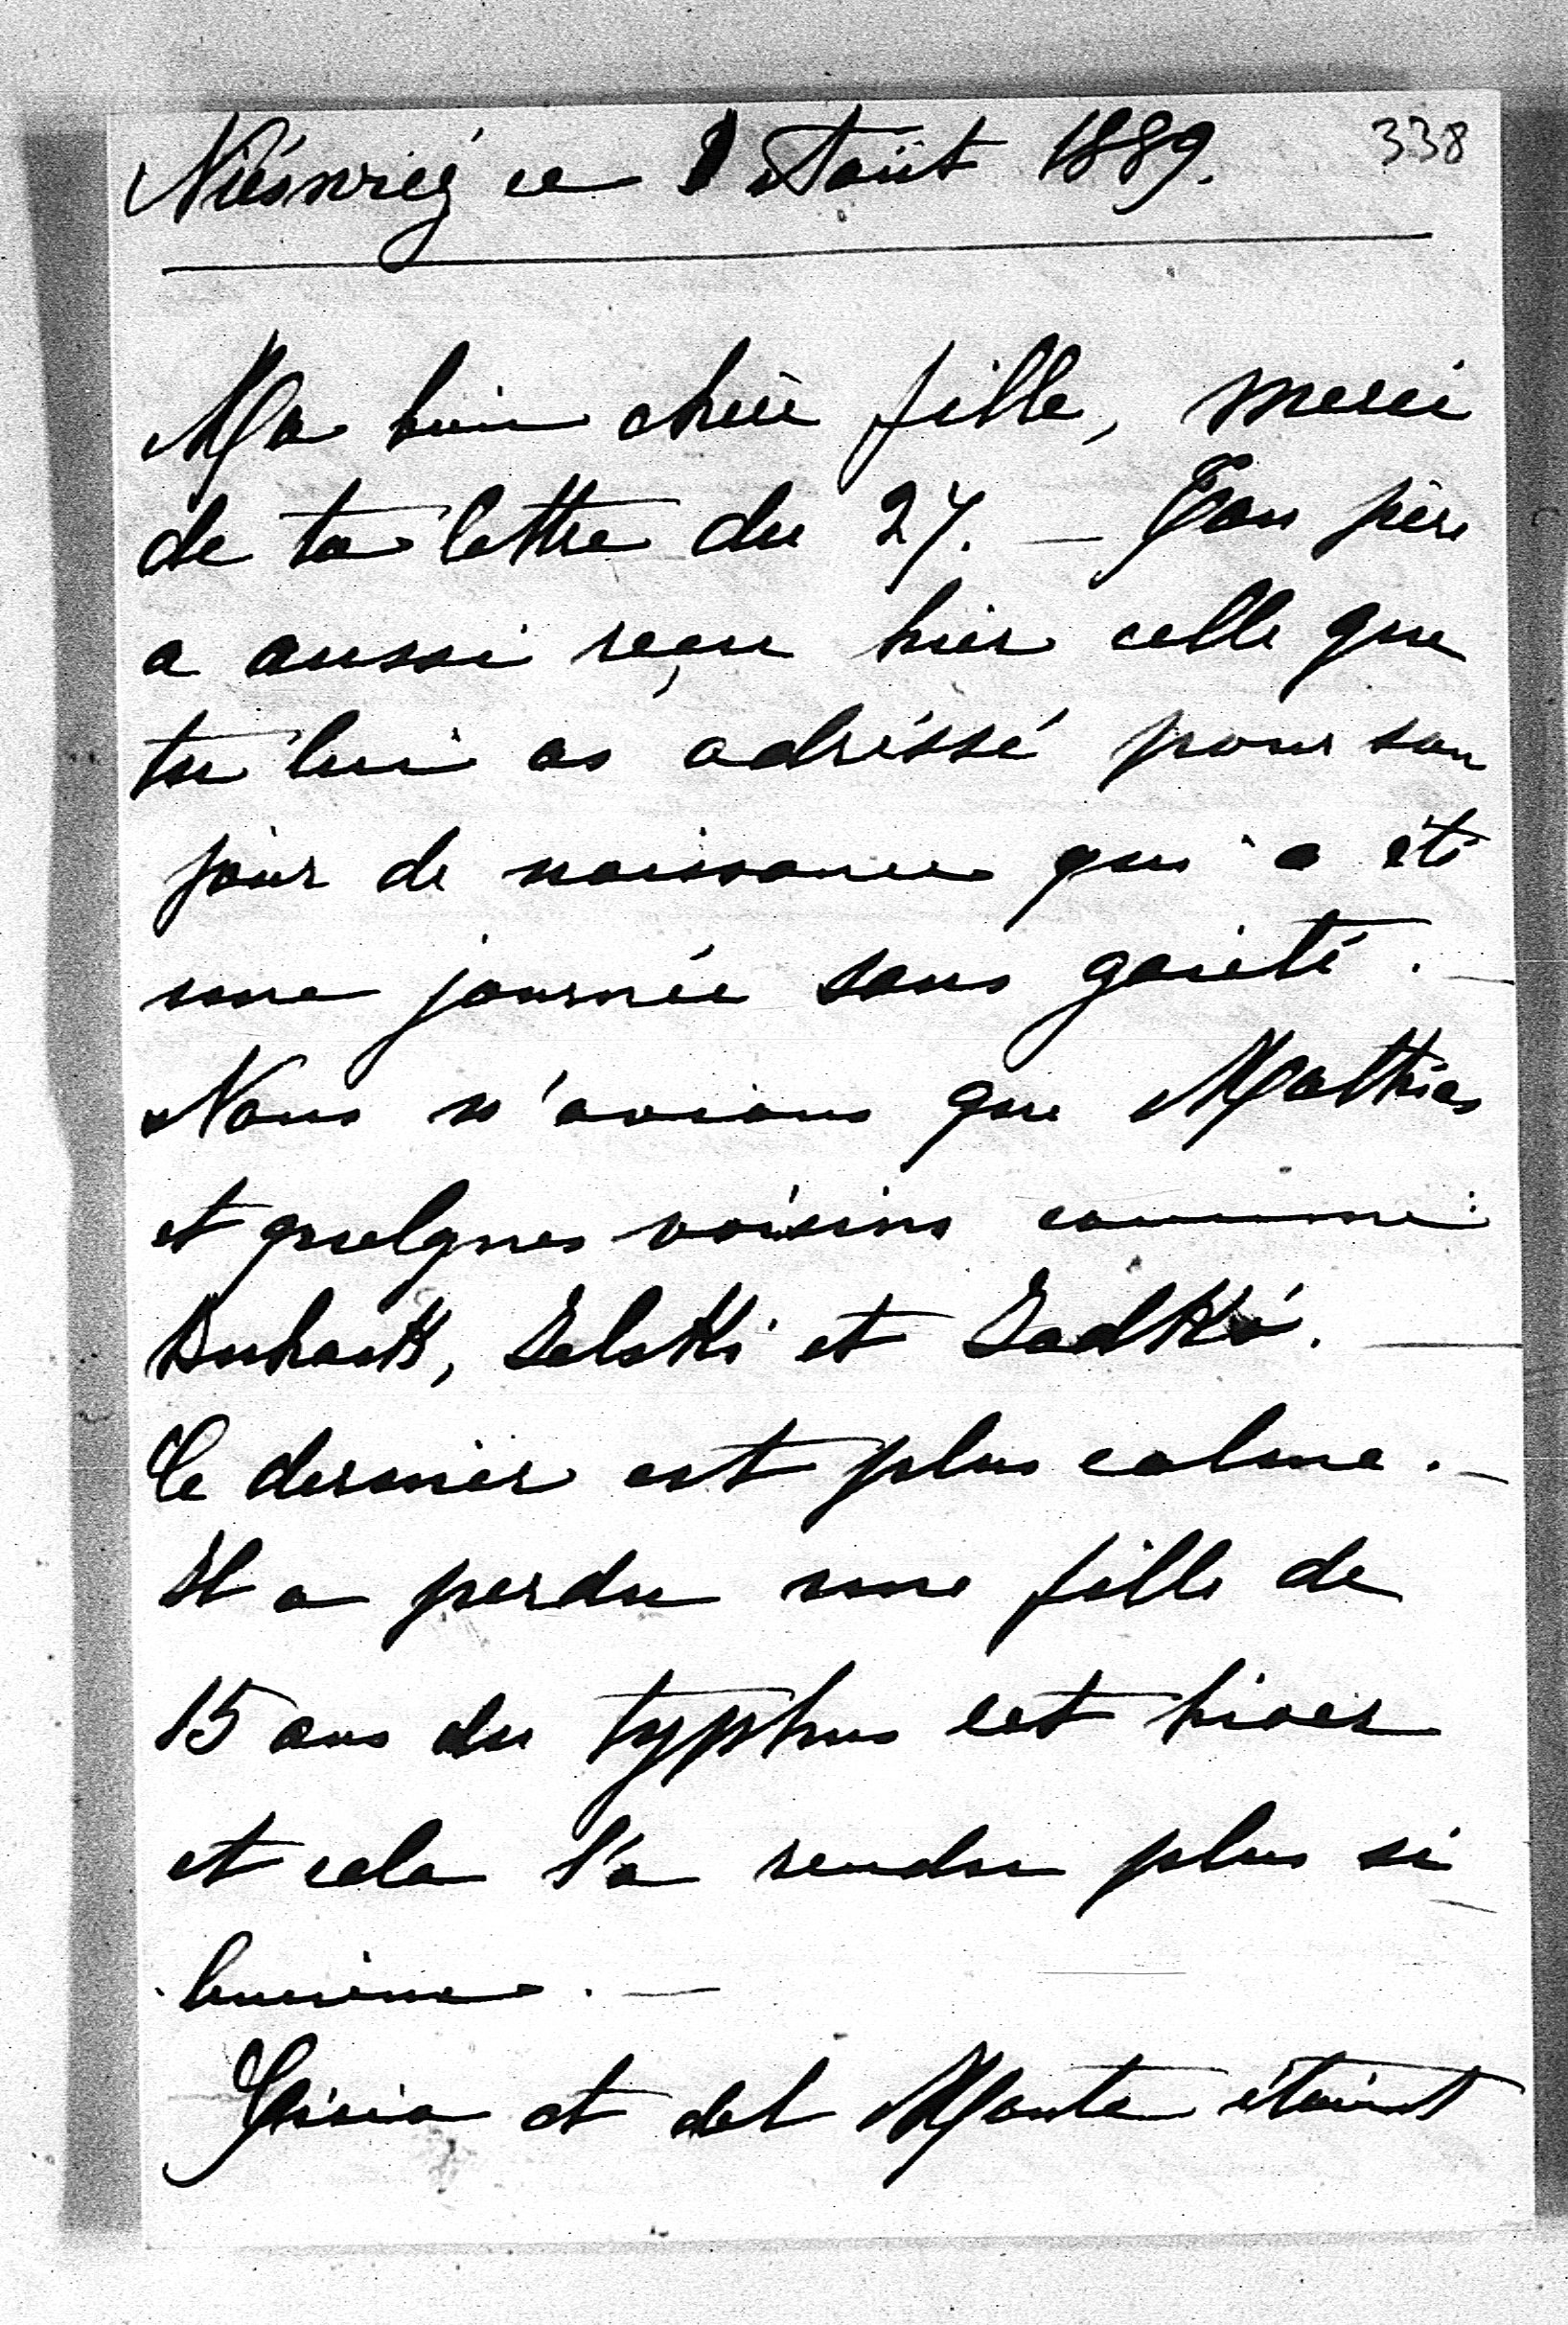 Nieśwież ce 1 Août 1889.
338
Ma bien chère fille, merci
de ta lettre du 27. — Ton père
a aussi reçu hier celle que
tu lui as adréssé pour son
jour de naissance qui a été
une journée sans gaieté. —
Nous n'avions que Mathias
et quelques voisins comme:
et
Ce dernier est plus calme. —
Il a perdu une fille de
15 ans du typhus cet hiver
et cela l'a rendu plus si
lencieux. —
et del Monte étaient